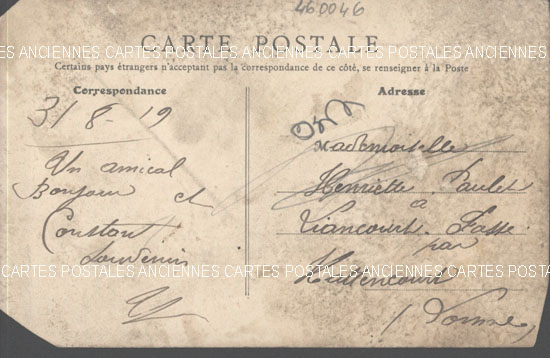 460046
CARTE POSTALE
CARTES POSTALES ANCIENNES CARTES POSTALES ANCIENNES CARTES POSTALES
Certains pays étrangers n'acceptant pas la correspondance de ce côté, se renseigner à la Poste
Correspondance
31-8-19
Un amical
Bonjour et
Constant
Souvenir
Adresse
Mademoiselle
Henriette Paulet
à
Liancourt-Fosse
par
Hattencourt
/ Somme /
CARTES POSTALES ANCIENNES CARTES POSTALES ANCIENNES CARTES POSTALES